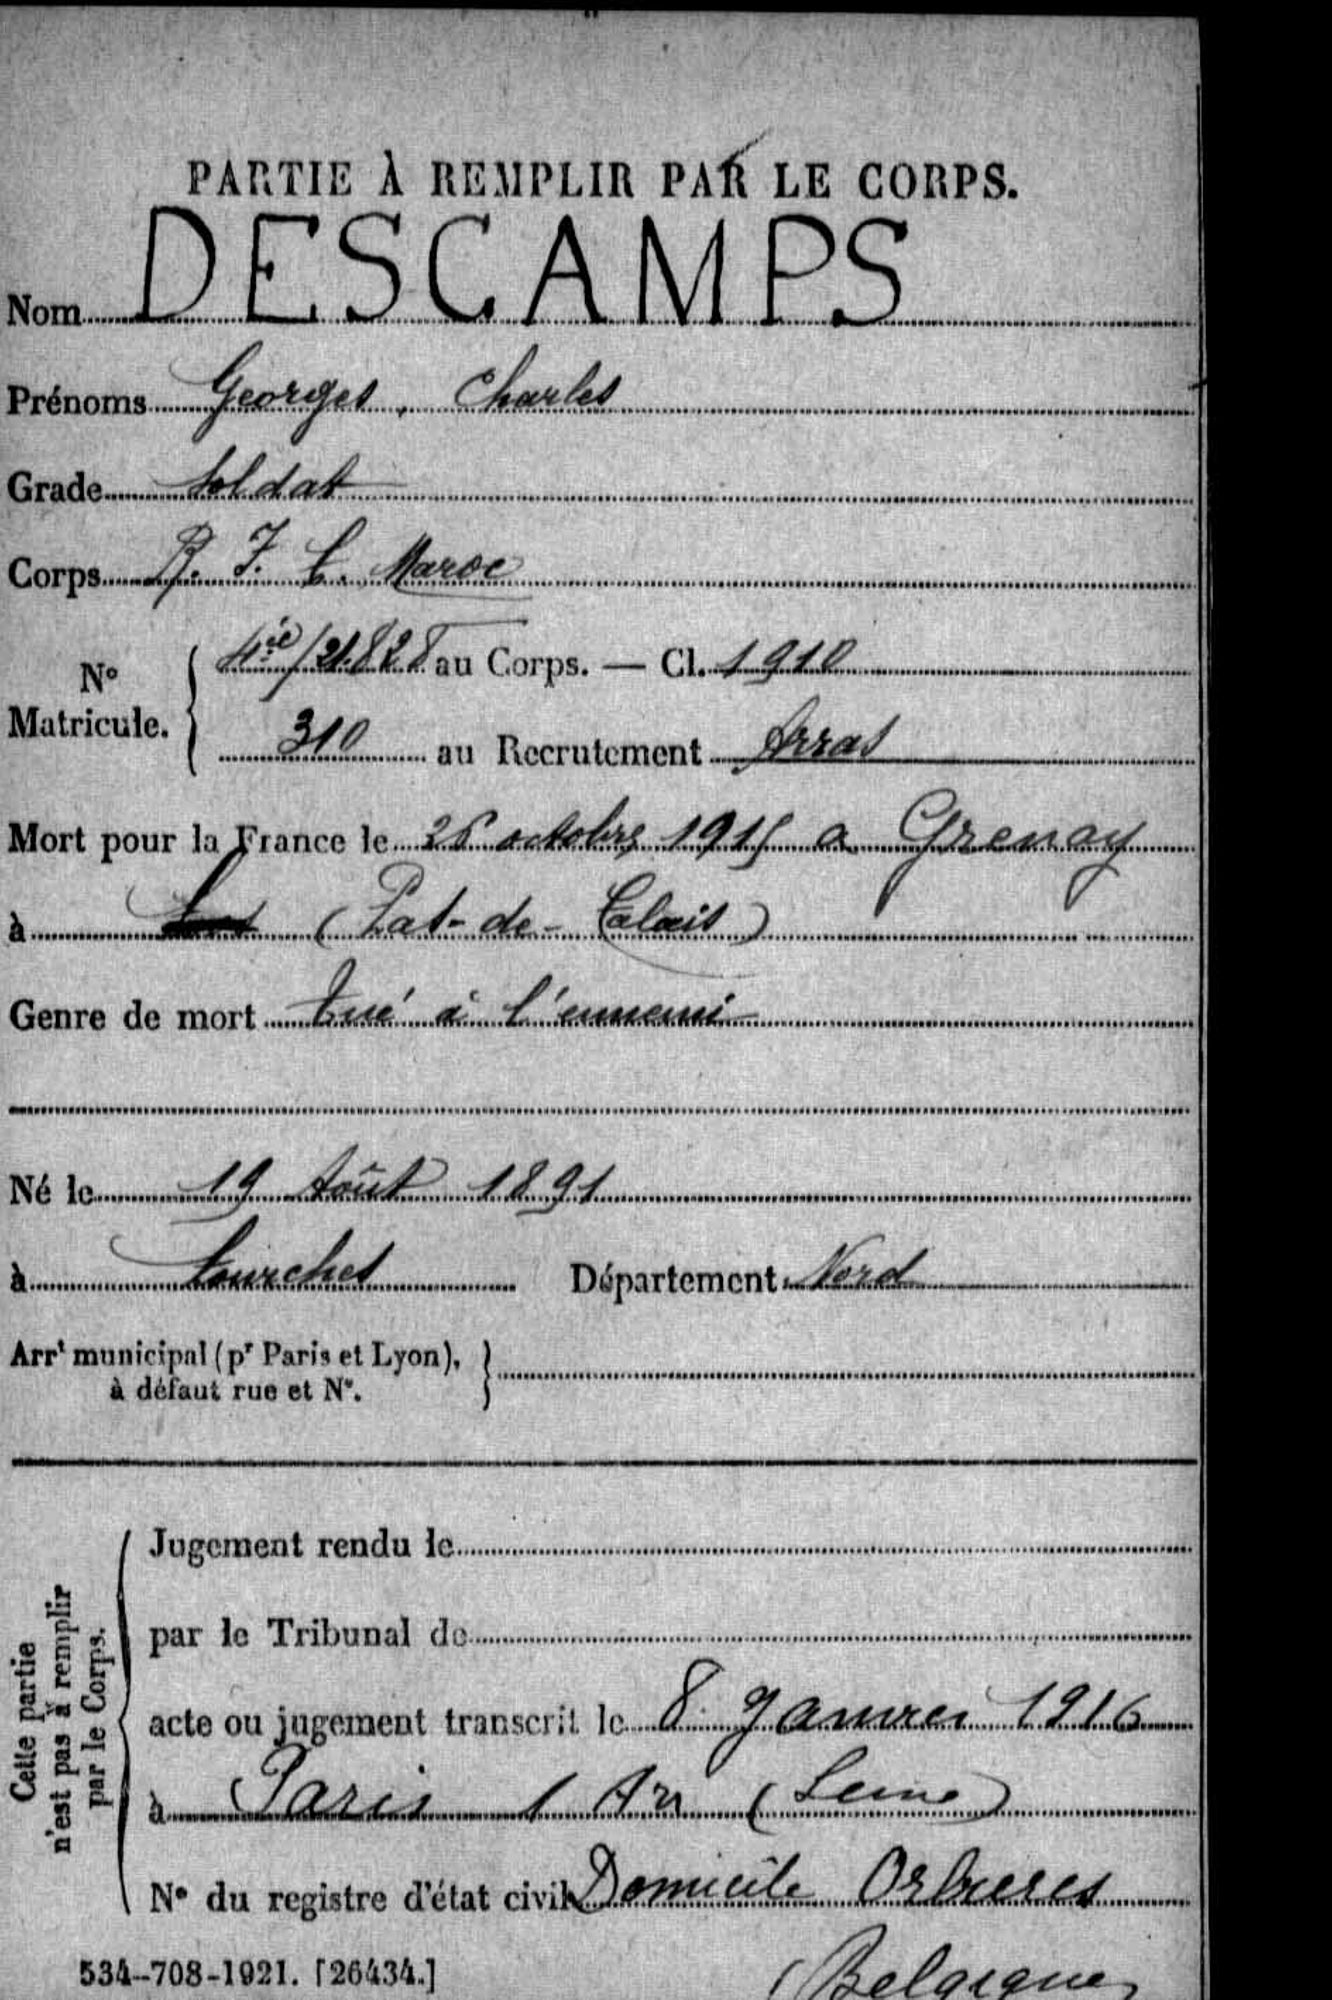 PARTIE À REMPLIR PAR LE CORPS.
Nom DESCAMPS
Prénoms Georges, Charles
Grade Soldat
Corps R. I. C. Maroc
N° Matricule. 4ie/21.828 au Corps. — Cl. 1910
310 au Recrutement Arras
Mort pour la France le 26 octobre 1915 a Grenay
à (Pas-de-Calais)
Genre de mort tué à l'ennemi
Né le 19 Août 1891
à Lourches Département Nord
Arrt municipal (pr Paris et Lyon),
à défaut rue et N°.
Cette partie
n'est pas à remplir
par le Corps.
Jugement rendu le
par le Tribunal de
acte ou jugement transcrit le 8 Janvier 1916
à Paris 1 Arr (Seine)
N° du registre d'état civil Domicile
534-708-1921. [26434.]
(Belgique